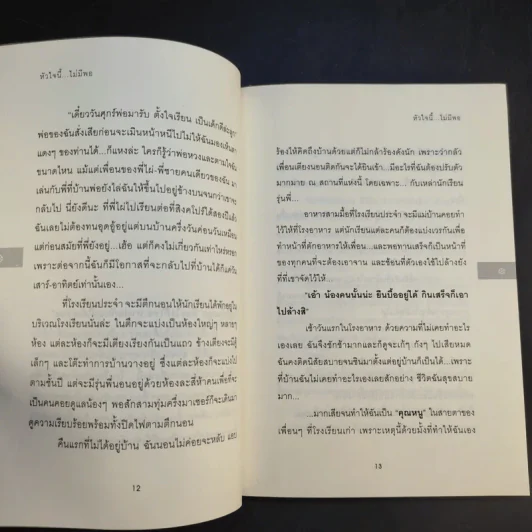 หัวใจนี้...ไม่มีพอ
"เดี๋ยววันศุกร์พ่อมารับ ตั้งใจเรียน เป็นเด็กดีล่ะลูก"
พ่อของฉันสั่งเสียก่อนจะเมินหน้าหนีไปไม่ให้ฉันมองเห็นตา
แดงๆ ของท่านได้ ...ก็แหงล่ะ ใครก็รู้ว่าพ่อหวงและตามใจฉัน
ขนาดไหน แม้แต่เพื่อนของพี่ไผ่-พี่ชายคนเดียวของฉัน มา
เล่นกับพี่ที่บ้านพ่อยังไล่ฉันให้ขึ้นไปอยู่ข้างบนจนกว่าเขาจะ
กลับไป นี่ยังดีนะ ที่พี่ไผ่ไปเรียนต่อที่สิงคโปร์ได้สองปีแล้ว
ฉันเลยไม่ต้องทนอุดอู้อยู่แต่บนบ้านครึ่งวันค่อนวันเหมือน
แต่ก่อนสมัยที่พี่ยังอยู่ ...เฮ้อ แต่ก็คงไม่เกี่ยวกันเท่าไหร่หรอก
เพราะต่อจากนี้ฉันก็มีโอกาสที่จะกลับไปที่บ้านได้ก็แค่วัน
เสาร์-อาทิตย์เท่านั้นเอง...
ที่โรงเรียนประจำ จะมีตึกนอนให้นักเรียนได้พักอยู่ใน
บริเวณโรงเรียนนั่นล่ะ ในตึกจะแบ่งเป็นห้องใหญ่ๆ หลายๆ
ห้อง แต่ละห้องก็จะมีเตียงเรียงกันเป็นแถว ข้างเตียงจะมีตู้
เล็กๆ และโต๊ะทำการบ้านวางอยู่ ซึ่งแต่ละห้องก็จะแบ่งไป
ตามชั้นปี แต่จะมีรุ่นพี่นอนอยู่ด้วยห้องละสี่ห้าคนเพื่อที่จะ
เป็นคนคอยดูแลน้องๆ พอสักสามทุ่มครึ่งมาเซอร์ก็จะเดินมา
ดูความเรียบร้อยพร้อมทั้งปิดไฟตามตึกนอน
คืนแรกที่ไม่ได้อยู่บ้าน ฉันนอนไม่ค่อยจะหลับ
12
หัวใจนี้...ไม่มีพอ
ร้องไห้คิดถึงบ้านด้วยแต่ก็ไม่กล้าร้องดังนัก เพราะกลัว
เพื่อนเตียงนอนติดกันจะได้ยินเข้า ...มีอะไรที่ฉันต้องปรับตัว
มากมาย ณ สถานที่แห่งนี้ โดยเฉพาะ... กับเหล่านักเรียน
รุ่นพี่...
อาหารสามมื้อที่โรงเรียนประจำ จะมีแม่บ้านคอยทำ
ไว้ให้ที่โรงอาหาร แต่นักเรียนแต่ละคนก็ต้องแบ่งเวรกันเพื่อ
ทำหน้าที่ตักอาหารให้เพื่อน ...และพอทานเสร็จก็เป็นหน้าที่
ของทุกคนที่จะต้องเอาจาน และช้อนที่ตัวเองใช้ไปล้างยัง
ที่ที่เขาจัดไว้ให้...
"เฮ้า น้องคนนั้นน่ะ ยืนบื้ออยู่ได้ กินเสร็จก็เอา
ไปล้างสิ"
เช้าวันแรกในโรงอาหาร ด้วยความที่ไม่เคยทำอะไร
เองเลย ฉันจึงชักช้ามากและก็ดูจะเก้ๆ กังๆ ไปเสียหมด
ฉันคงติดนิสัยสบายจนชินมาตั้งแต่อยู่บ้านก็เป็นได้...เพราะ
ที่บ้านฉันไม่เคยทำอะไรเองเลยสักอย่าง ชีวิตฉันสุขสบาย
มาก...
...มากเสียจนทำให้ฉันเป็น "คุณหนู" ในสายตาของ
เพื่อนๆ ที่โรงเรียนเก่า เพราะเหตุนี้ด้วยมั้งที่ทำให้ฉันเอง
13